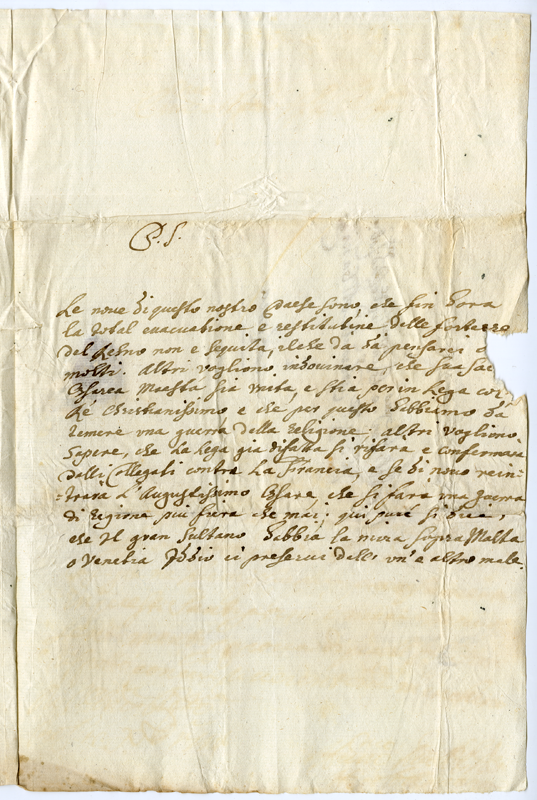 P. S.
Le nove di questo nostro Paese sono, che fin hora
la total evacuatione e restitutine delle fortezze
del Rehno non e sequita, il che da da pensarci a
molti. Altri vogliono indouinare, che sua Sac
Cesarea Maestà sia unita, e stia per in Lega col
Re Christianissimo e che per questo habbiamo da
temere una guerra della religione: altri vogliono
sapere, che la Lega gia disfatta si rifara e confermara
dalli Collegati contra La Francia, e se di nouo rein-
-trara L'Augustissimo Cesare, che si fara una guerra
di regione piu fiera che mai; qui pure si dice,
che Il gran Sultano habbia la mira sopra Malta
o Venetia Iddio ci preserui dall' un' e altro male.